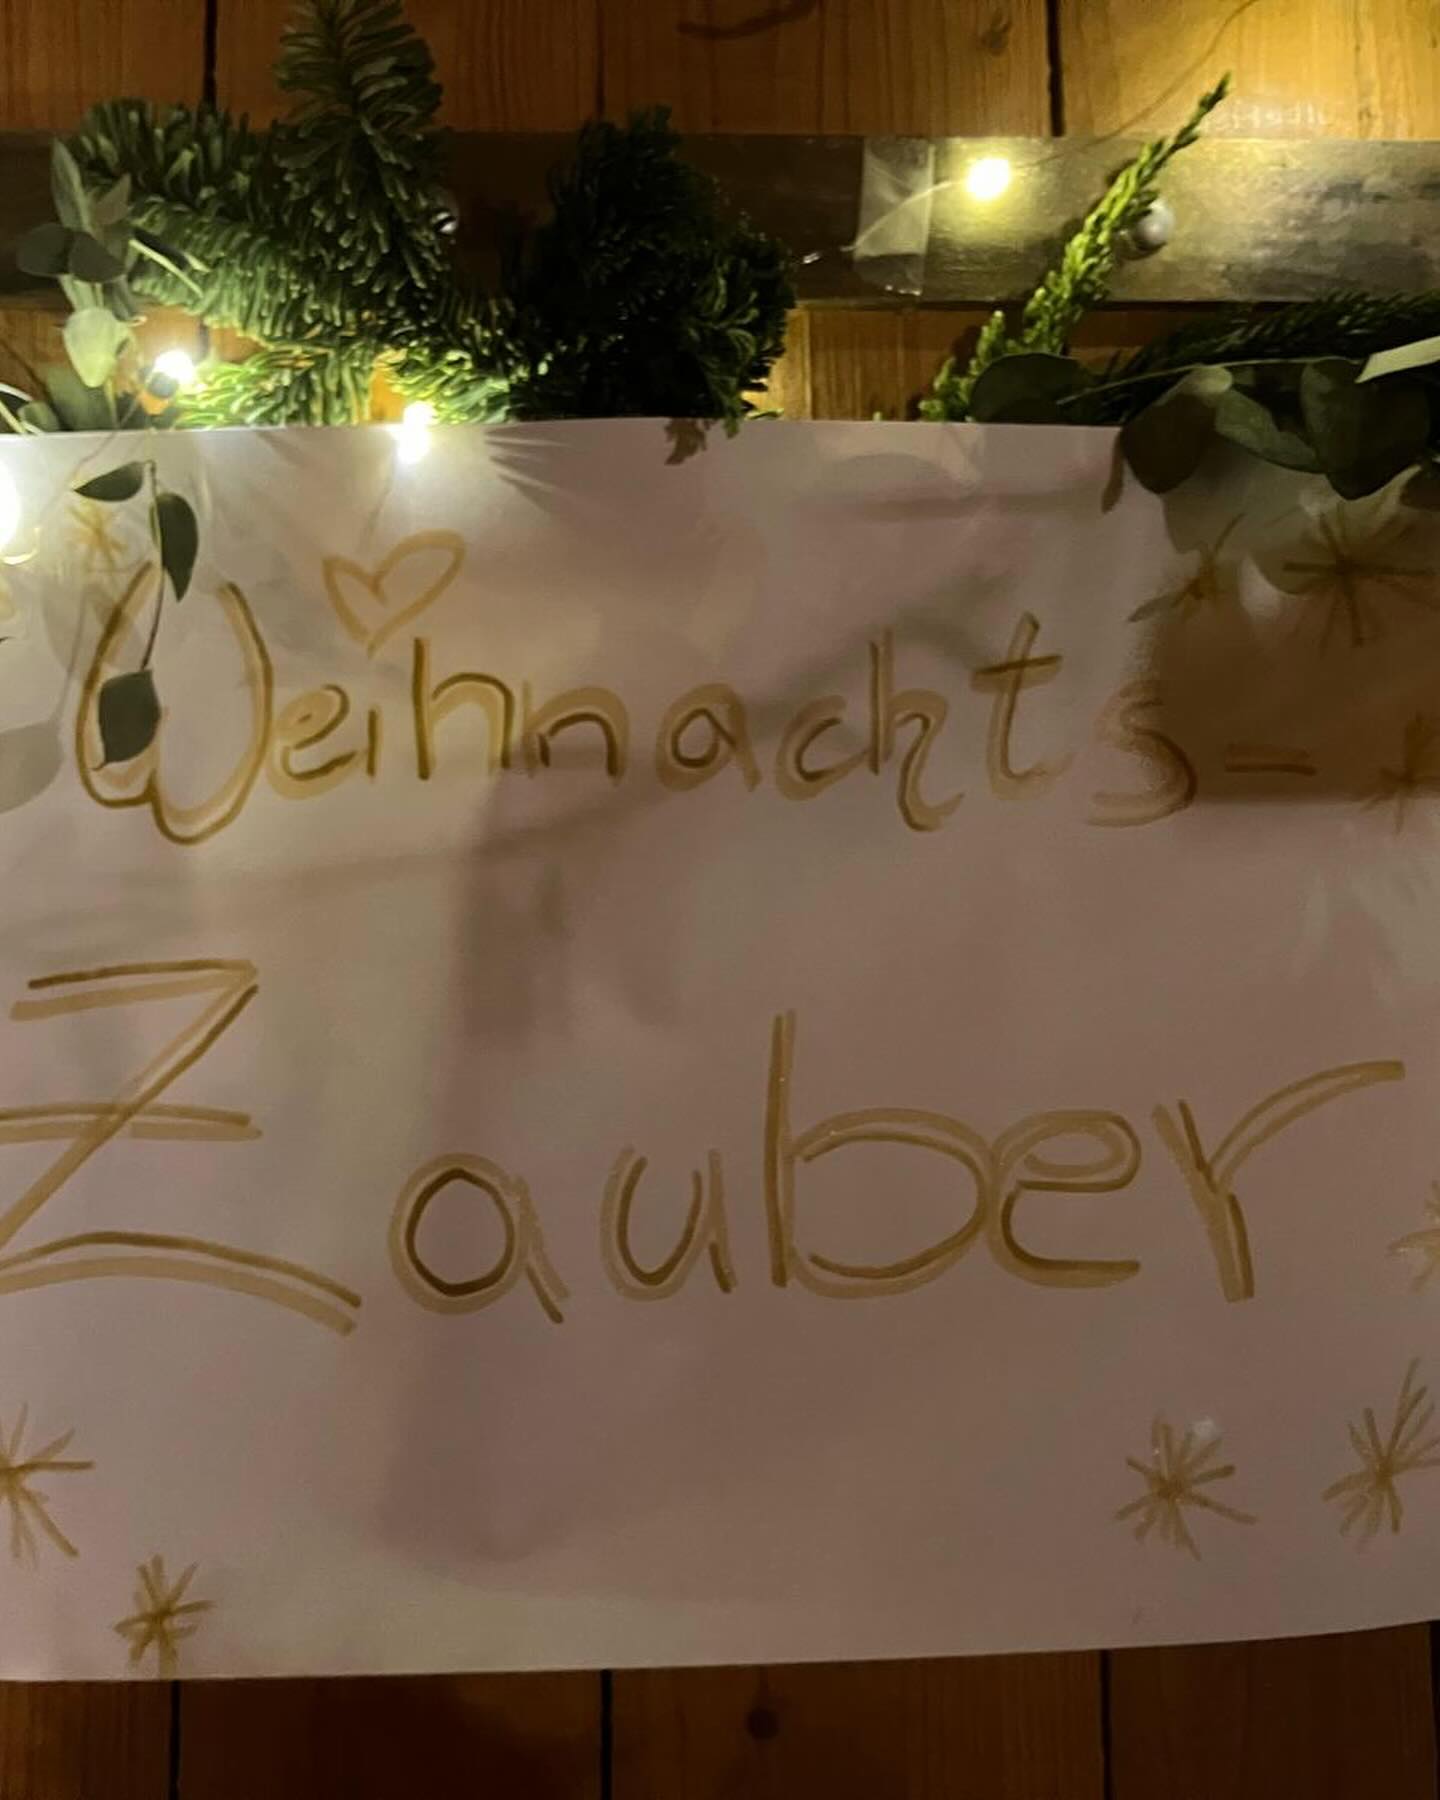 Weihnachts-
Zauber